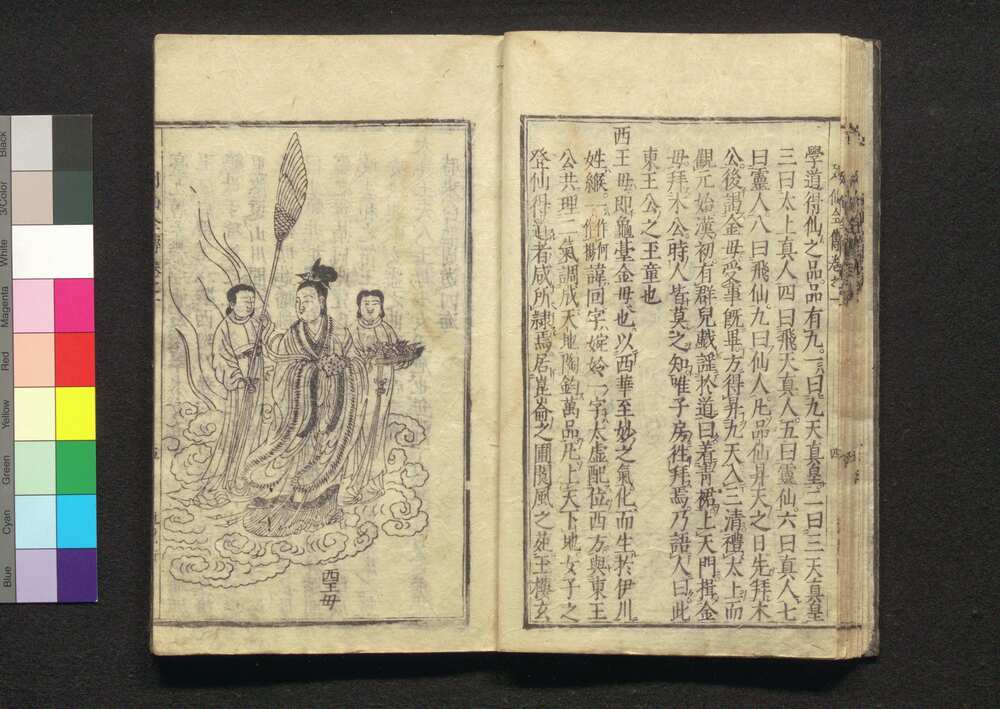 學道得仙之品品有九一曰九天真皇二曰三天真皇
三曰太上真人四曰飛天真人五曰靈仙六曰真人七
曰靈人八曰飛仙九曰仙人凡品仙昇天之日先拜木
公後謁金母受事既畢方得昇九天入三清禮太上而
觀元始漢初有群兒戲謠於道曰着青裙上天門揖金
母拜木公時人皆莫之知唯子房往拜焉乃語人曰此
東王公之玉童也
西王母即龜臺金母也以西華至妙之氣化而生於伊川
姓緱一作何一作楊諱回字婉妗一字太虛配位西方與東王
公共理二氣調成天地陶鈞萬品凡上天下地女子之
登仙得道者咸所隷焉居崑崙之圃閬風之苑玉樓玄
西王母
Black
3/Color
White
Magenta
Red
Yellow
Green
Cyan
Blue